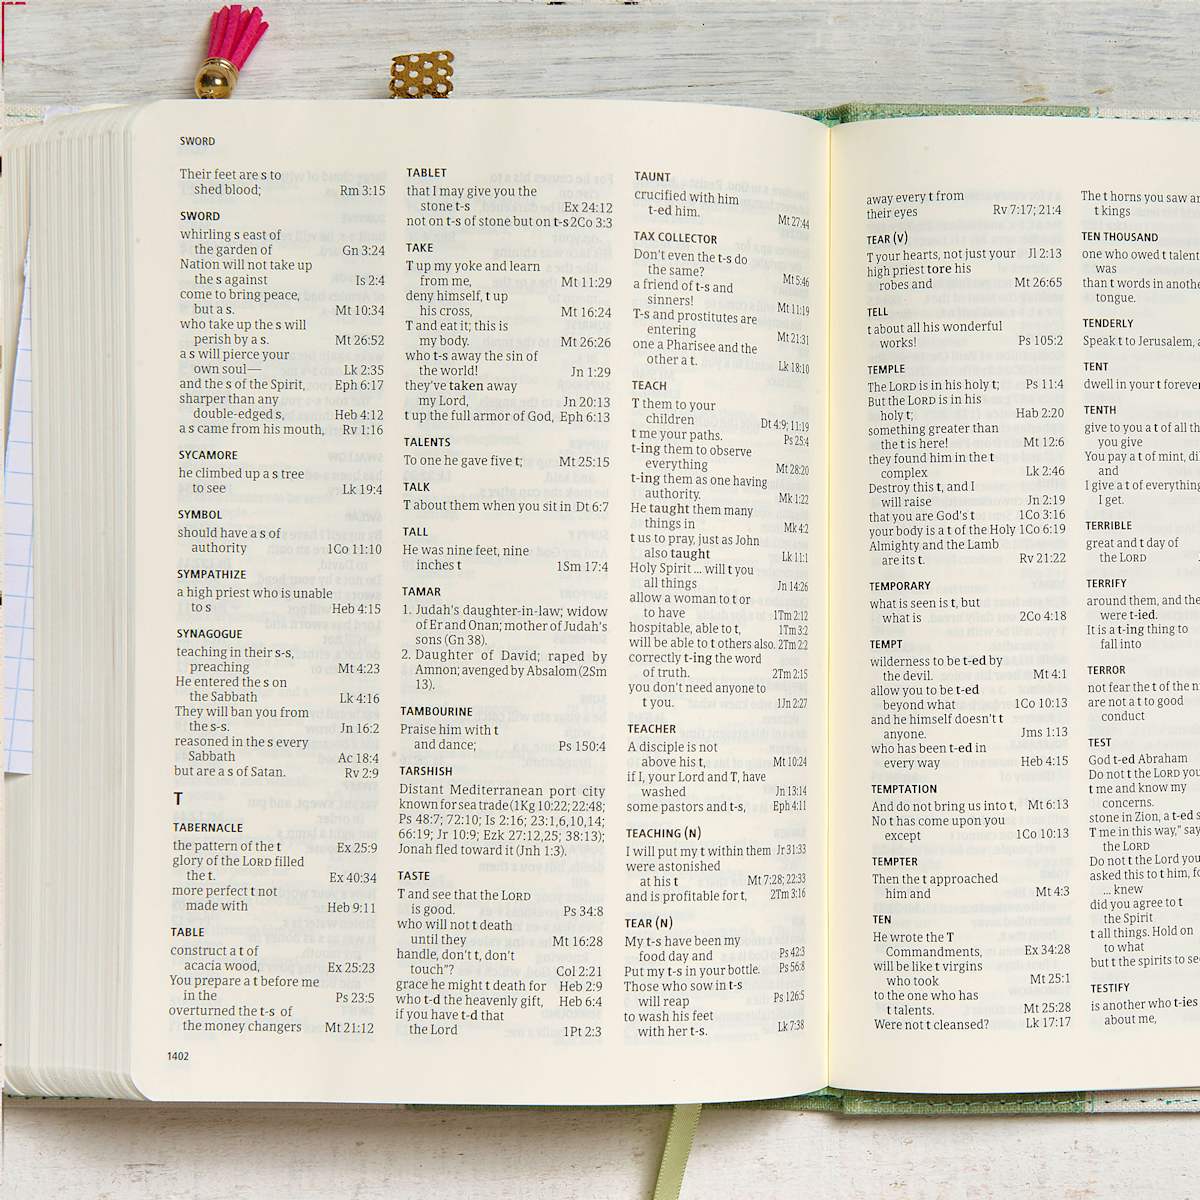 SWORD
Their feet are s to
shed blood; Rm 3:15
SWORD
whirling s east of
the garden of Gn 3:24
Nation will not take up
the s against Is 2:4
come to bring peace,
but a s. Mt 10:34
who take up the s will
perish by a s. Mt 26:52
a s will pierce your
own soul— Lk 2:35
and the s of the Spirit, Eph 6:17
sharper than any
double-edged s, Heb 4:12
a s came from his mouth, Rv 1:16
SYCAMORE
he climbed up a s tree
to see Lk 19:4
SYMBOL
should have a s of
authority 1Co 11:10
SYMPATHIZE
a high priest who is unable
to s Heb 4:15
SYNAGOGUE
teaching in their s-s,
preaching Mt 4:23
He entered the s on
the Sabbath Lk 4:16
They will ban you from
the s-s. Jn 16:2
reasoned in the s every
Sabbath Ac 18:4
but are a s of Satan. Rv 2:9
T
TABERNACLE
the pattern of the t Ex 25:9
glory of the LORD filled
the t. Ex 40:34
more perfect t not
made with Heb 9:11
TABLE
construct a t of
acacia wood, Ex 25:23
You prepare a t before me
in the Ps 23:5
overturned the t-s of
the money changers Mt 21:12
1402
TABLET
that I may give you the
stone t-s Ex 24:12
not on t-s of stone but on t-s 2Co 3:3
TAKE
T up my yoke and learn
from me, Mt 11:29
deny himself, t up
his cross, Mt 16:24
T and eat it; this is
my body. Mt 26:26
who t-s away the sin of
the world! Jn 1:29
they've taken away
my Lord, Jn 20:13
t up the full armor of God, Eph 6:13
TALENTS
To one he gave five t; Mt 25:15
TALK
T about them when you sit in Dt 6:7
TALL
He was nine feet, nine
inches t 1Sm 17:4
TAMAR
1. Judah's daughter-in-law; widow
of Er and Onan; mother of Judah's
sons (Gn 38).
2. Daughter of David; raped by
Amnon; avenged by Absalom (2Sm
13).
TAMBOURINE
Praise him with t
and dance; Ps 150:4
TARSHISH
Distant Mediterranean port city
known for sea trade (1Kg 10:22; 22:48;
Ps 48:7; 72:10; Is 2:16; 23:1,6,10,14;
66:19; Jr 10:9; Ezk 27:12,25; 38:13);
Jonah fled toward it (Jnh 1:3).
TASTE
T and see that the LORD
is good. Ps 34:8
who will not t death
until they Mt 16:28
handle, don't t, don't
touch"? Col 2:21
grace he might t death for Heb 2:9
who t-d the heavenly gift, Heb 6:4
if you have t-d that
the Lord 1Pt 2:3
TAUNT
crucified with him
t-ed him. Mt 27:44
TAX COLLECTOR
Don't even the t-s do
the same? Mt 5:46
a friend of t-s and
sinners! Mt 11:19
T-s and prostitutes are
entering Mt 21:31
one a Pharisee and the
other a t. Lk 18:10
TEACH
T them to your
children Dt 4:9; 11:19
t me your paths. Ps 25:4
t-ing them to observe
everything Mt 28:20
t-ing them as one having
authority. Mk 1:22
He taught them many
things in Mk 4:2
t us to pray, just as John
also taught Lk 11:1
Holy Spirit ... will t you
all things Jn 14:26
allow a woman to t or
to have 1Tm 2:12
hospitable, able to t, 1Tm 3:2
will be able to t others also. 2Tm 2:2
correctly t-ing the word
of truth. 2Tm 2:15
you don't need anyone to
t you. 1Jn 2:27
TEACHER
A disciple is not
above his t, Mt 10:24
if I, your Lord and T, have
washed Jn 13:14
some pastors and t-s, Eph 4:11
TEACHING (N)
I will put my t within them Jr 31:33
were astonished
at his t Mt 7:28; 22:33
and is profitable for t, 2Tm 3:16
TEAR (N)
My t-s have been my
food day and Ps 42:3
Put my t-s in your bottle. Ps 56:8
Those who sow in t-s
will reap Ps 126:5
to wash his feet
with her t-s. Lk 7:38
away every t from
their eyes Rv 7:17; 21:4
TEAR (V)
T your hearts, not just your Jl 2:13
high priest tore his
robes and Mt 26:65
TELL
t about all his wonderful
works! Ps 105:2
TEMPLE
The LORD is in his holy t; Ps 11:4
But the LORD is in his
holy t; Hab 2:20
something greater than
the t is here! Mt 12:6
they found him in the t
complex Lk 2:46
Destroy this t, and I
will raise Jn 2:19
that you are God's t 1Co 3:16
your body is a t of the Holy 1Co 6:19
Almighty and the Lamb
are its t. Rv 21:22
TEMPORARY
what is seen is t, but
what is 2Co 4:18
TEMPT
wilderness to be t-ed by
the devil. Mt 4:1
allow you to be t-ed
beyond what 1Co 10:13
and he himself doesn't t
anyone. Jms 1:13
who has been t-ed in
every way Heb 4:15
TEMPTATION
And do not bring us into t, Mt 6:13
No t has come upon you
except 1Co 10:13
TEMPTER
Then the t approached
him and Mt 4:3
TEN
He wrote the T
Commandments, Ex 34:28
will be like t virgins
who took Mt 25:1
to the one who has
t talents. Mt 25:28
Were not t cleansed? Lk 17:17
The t horns you saw
t kings
TEN THOUSAND
one who owed t talent
was
than t words in
tongue.
TENDERLY
Speak t to Jerusalem,
TENT
dwell in your t forever
TENTH
give to you a t of all
you give
You pay a t of mint,
and
I give a t of everything
I get.
TERRIBLE
great and t day of
the LORD
TERRIFY
around them, and
were t-ied.
It is a t-ing thing to
fall into
TERROR
not fear the t of the
are not a t to good
conduct
TEST
God t-ed Abraham
Do not t the LORD
t me and know my
concerns.
stone in Zion, a t-ed
T me in this way," say
the LORD
Do not t the Lord
asked this to t him,
... knew
did you agree to t
the Spirit
t all things. Hold on
to what
but t the spirits to
TESTIFY
is another who t-ies
about me,